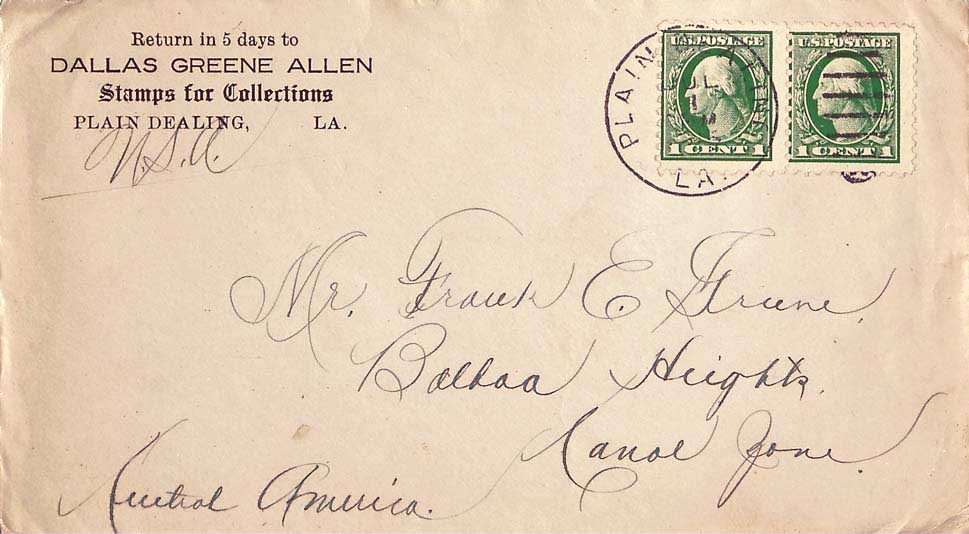 Return in 5 days to
DALLAS GREENE ALLEN
Stamps for Collections
PLAIN DEALING, LA.
U.S.A.
U.S. POSTAGE
1 CENT 1
U.S. POSTAGE
1 CENT 1
PLAIN DEALING
JUL
1
LA.
Mr. Frank E. Frune.
Balboa Heights.
Canal Zone.
Central America.